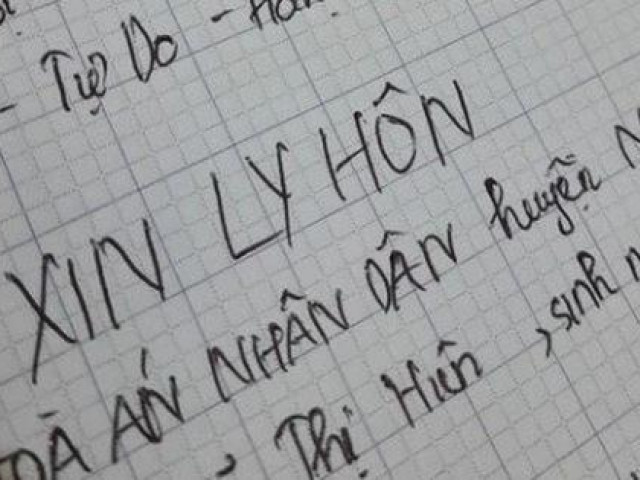 - Tự Do -
XIN LY HÔN
TOÀ ÁN NHÂN DÂN huyện N
, Thị Hiên , sinh n